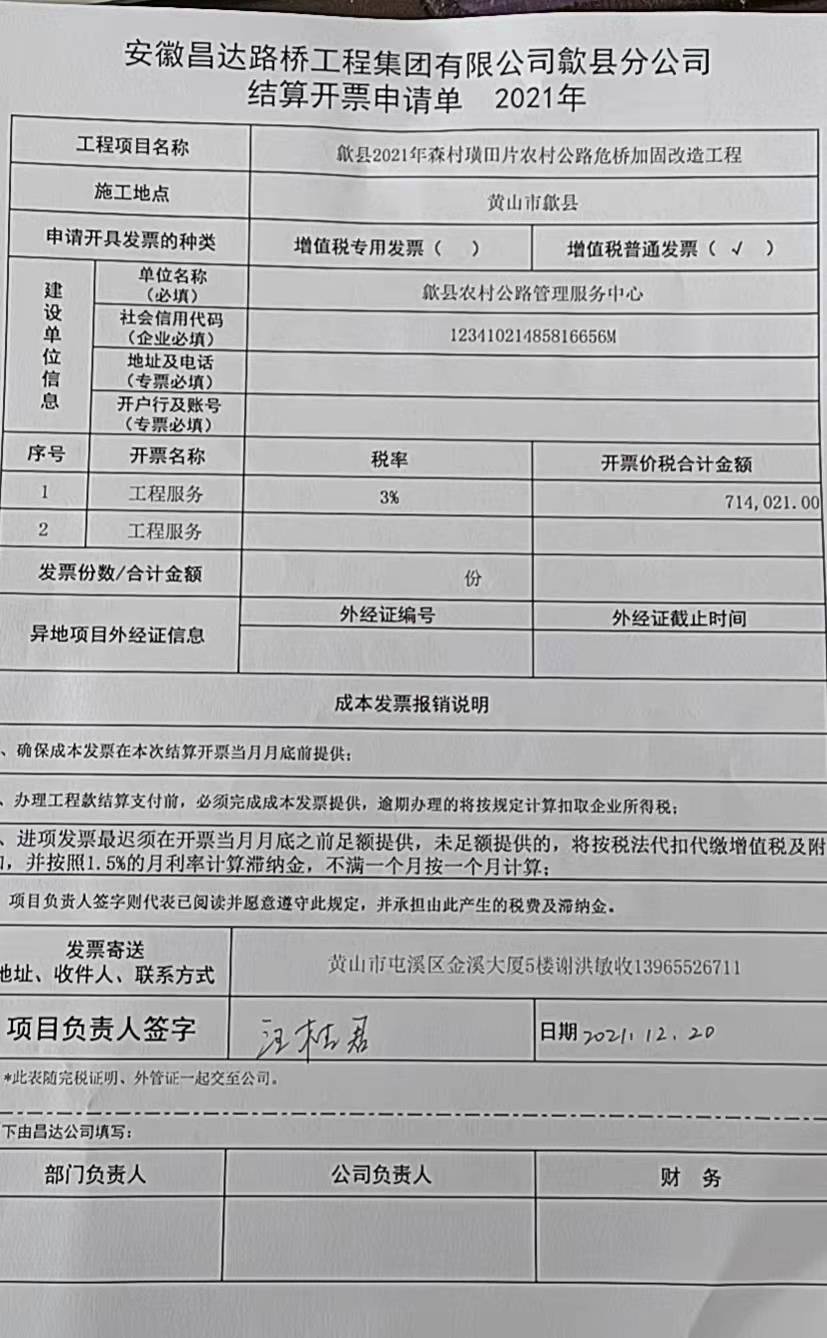 安徽昌达路桥工程集团有限公司歙县分公司
结算开票申请单 2021年
工程项目名称 歙县2021年森村璜田片农村公路危桥加固改造工程
施工地点 黄山市歙县
申请开具发票的种类 增值税专用发票（ ） 增值税普通发票（ √ ）
建设单位信息
单位名称
（必填）
歙县农村公路管理服务中心
社会信用代码
（企业必填）
12341021485816656M
地址及电话
（专票必填）
开户行及账号
（专票必填）
序号 开票名称 税率 开票价税合计金额
1 工程服务 3% 714,021.00
2 工程服务
发票份数/合计金额 份
异地项目外经证信息 外经证编号 外经证截止时间
成本发票报销说明
、确保成本发票在本次结算开票当月月底前提供；
、办理工程款结算支付前，必须完成成本发票提供，逾期办理的将按规定计算扣取企业所得税；
、进项发票最迟须在开票当月月底之前足额提供，未足额提供的，将按税法代扣代缴增值税及附
，并按照1.5%的月利率计算滞纳金，不满一个月按一个月计算；
项目负责人签字则代表已阅读并愿意遵守此规定，并承担由此产生的税费及滞纳金。
发票寄送
地址、收件人、联系方式
黄山市屯溪区金溪大厦5楼谢洪敏收13965526711
项目负责人签字 汪桂君 日期 2021.12.20
*此表随完税证明、外管证一起交至公司。
下由昌达公司填写：
部门负责人 公司负责人 财 务